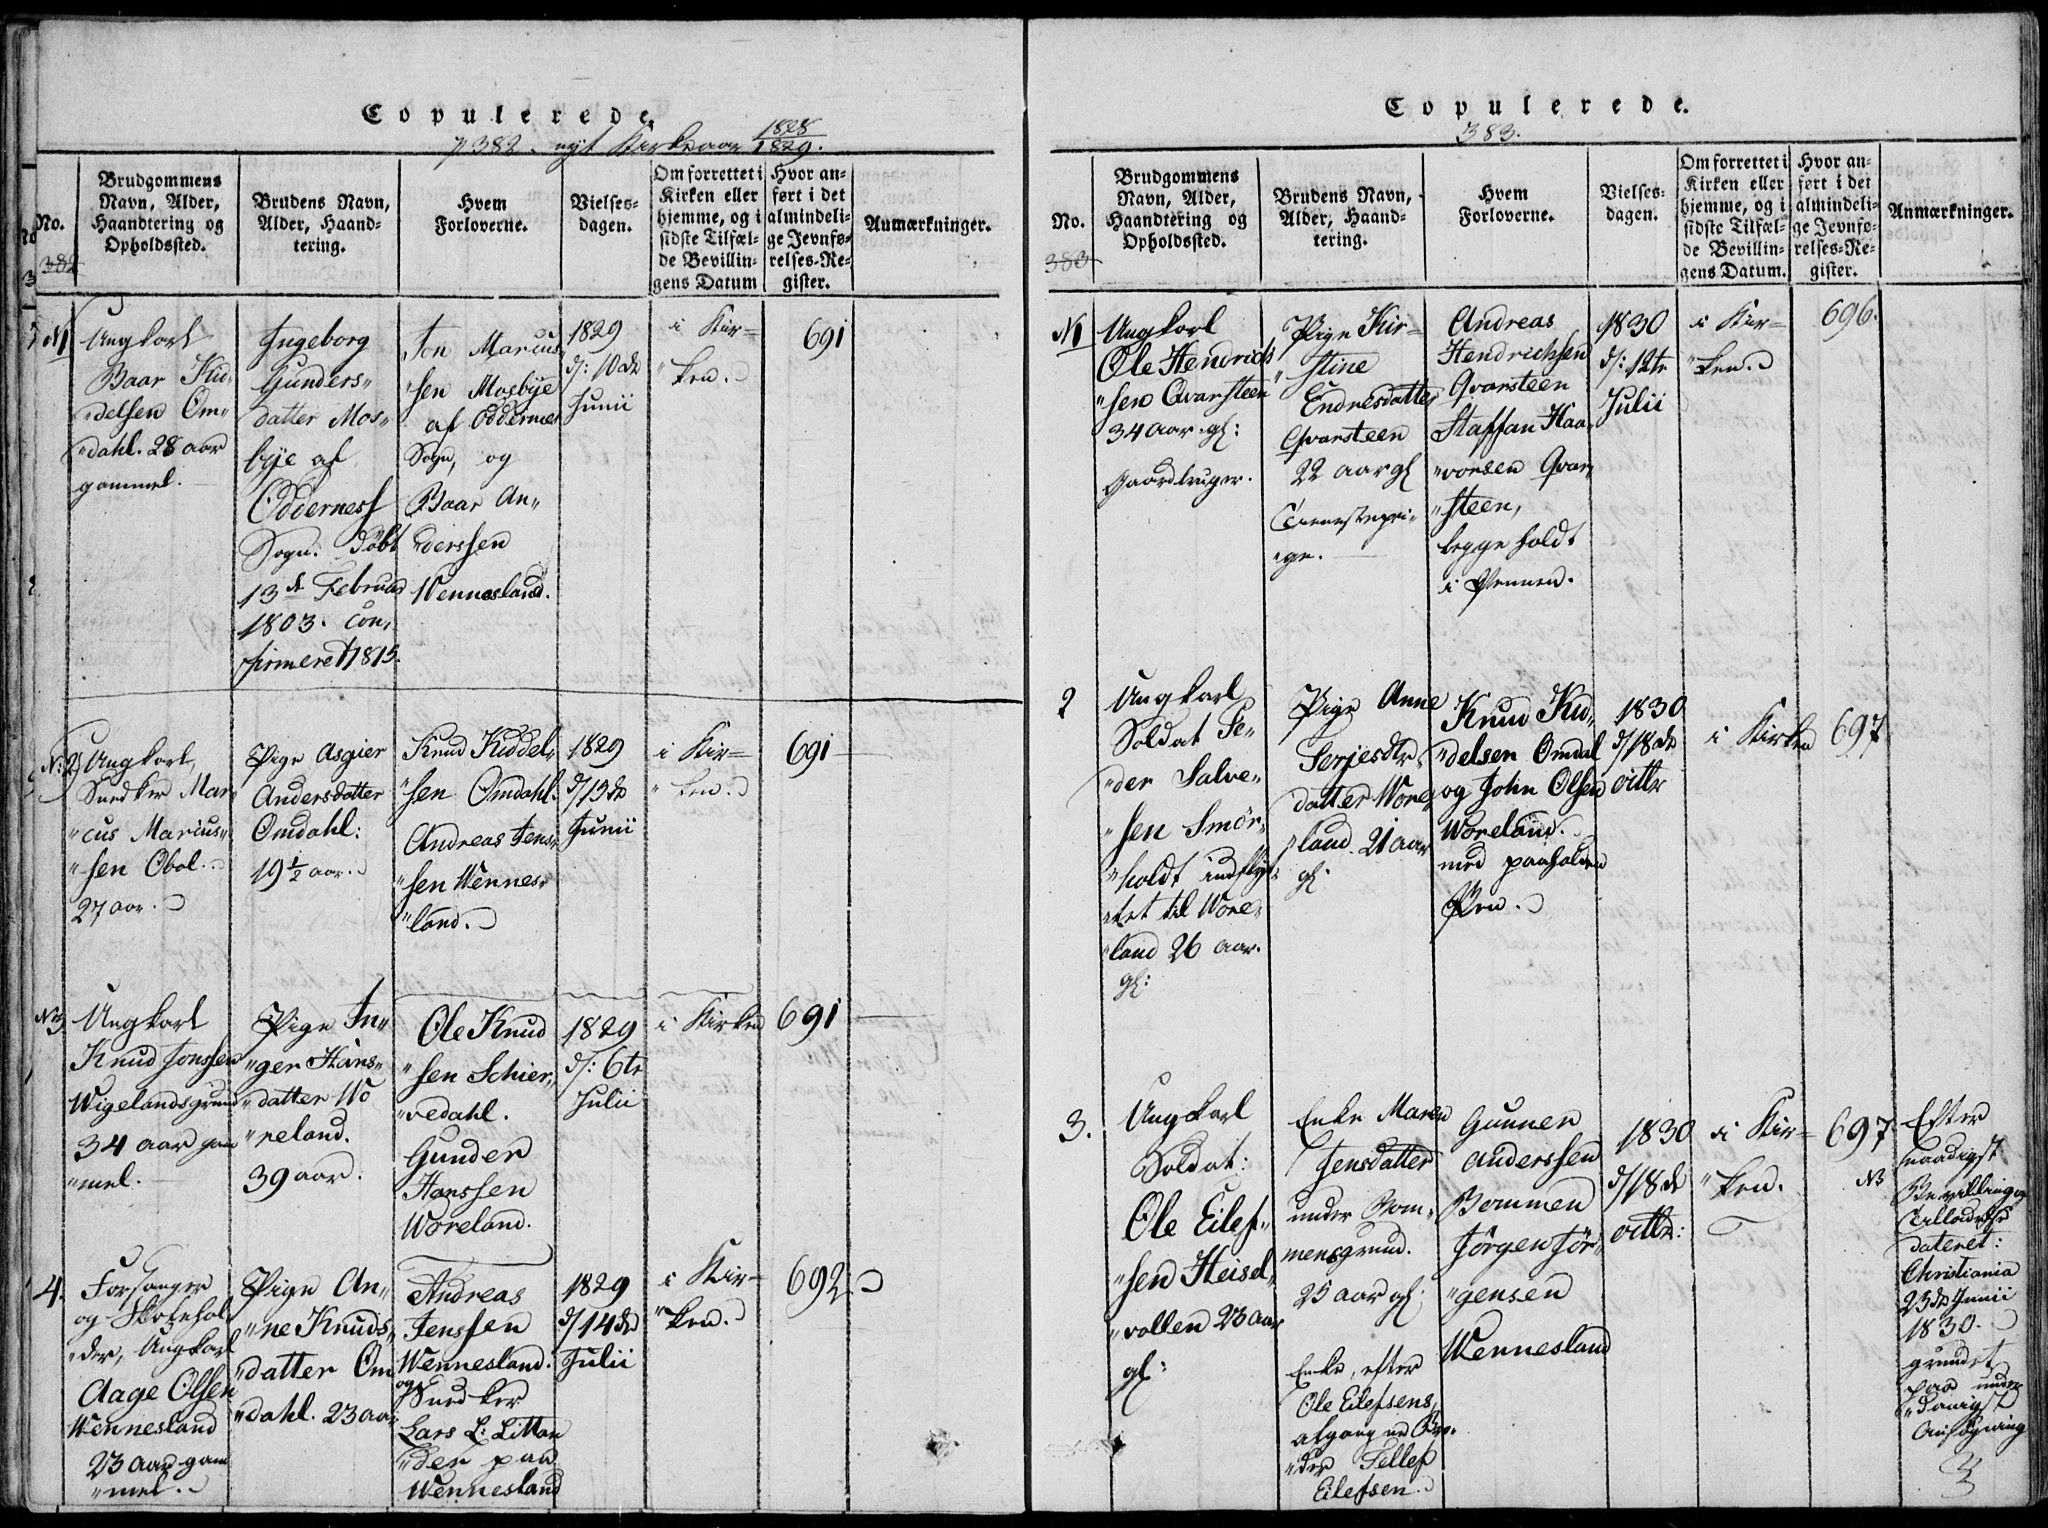 Copulerede.
p 382. nyt Kirkeaar 1828/1829.
No.
382
Brudgommens
Navn, Alder,
Haandtering og
Opholdssted.
Brudens Navn,
Alder, Haand-
tering.
Hvem
Forloverne.
Vielses-
dagen.
Om forrettet i
Kirken eller
hjemme, og i
sidste Tilfæl-
de Bevillin-
gens Datum
Hvor an-
ført i det
almindeli-
ge Jevnfø-
relses-Re-
gister.
Anmærkninger.
N1
Ungkarl
Baar Kid-
"delsen Om-
"dahl. 28 aar
gammel.
Ingeborg
Gunders-
datter Mos-
bye af
Odderness
Sogn. Døbt
13de Februar
1803. Con-
firmeret 1815.
Jon Marcus-
"sen Mosbye
af Oddernes
Sogn, og
Baar An-
"derssen
Wennesland.
1829
d: 10de
Junii
i Kir-
"ken.
691
N:2
Ungkarl,
Snedker Mar-
"cus Marius-
"sen Obol.
27 aar.
Pige Asgier
Andersdatter
Omdahl:
19 1/2 aar.
Knud Kiddel-
"sen Omdahl.
Andreas Jens-
"sen Wennes-
"land.
1829
d/13de
Junii
i Kir-
"ken.
691
N3
Ungkarl
Knud Jonssen
Wigelandsgrund
34 aar gam
"mel.
Pige In-
"ger Hans-
"datter Wo
"reland.
39 aar.
Ole Knud
"sen Schier-
"vedahl.
Gunder
Hanssen
Woreland.
1829
d: 6te
Julii
i Kirken
691
4.
Forsanger
og Skolehol-
"der, Ungkarl
Aage Olsen
Wennesland
23 aar gam
"mel.
Pige An-
"ne Knuds-
"datter Om
"dahl. 23 aar
Andreas
Jenssen
Wennesland.
og Snedker
Lars L: Litman
"der paa
Wennesland
1829
d/14de
Julii
i Kir-
"ken.
692.
Copulerede.
383.
No.
383
Brudgommens
Navn, Alder,
Haandtering og
Opholdssted.
Brudens Navn,
Alder, Haand-
tering.
Hvem
Forloverne.
Vielses-
dagen.
Om forrettet i
Kirken eller
hjemme, og i
sidste Tilfæl-
de Bevillin-
gens Datum.
Hvor an-
ført i det
almindeli-
ge Jevnfø-
relses-Re-
gister.
Anmærkninger.
N1
Ungkarl
Ole Hendrich
"sen Qvarsteen
34 aar gl:
Gaardbruger.
Pige Kir-
"stine
Endresdatter
Qvarsteen
22 aar gl
Tienestepi-
"ge.
Andreas
Hendrichsen
Qvarsteen
Staffan Haa-
"vorsen Qvar-
"steen,
begge holdt
i Pennen.
1830
d: 12te
Julii
i Kir-
"ken.
696.
2
Ungkarl
Soldat Pe-
"der Salve-
"sen Smør-
"holdt indflyt-
"tet til Wore-
"land 26 aar.
gl:
Pige Anne
Serjesdtr-
datter Wore-
"land. 21 aar
gl.
Knud Kid-
"delsen Omdal
og John Olsen
Woreland.
med paaholden
Pen.
1830
d/18de
octbr
i Kirken
697
3.
Ungkarl
Soldat:
Ole Eilef-
"sen Heisel-
"vollen 23 aar
gl:
Enke Maren
Jensdatter
under Bom-
mensgrund.
25 aar gl.
Enke, efter
Ole Eilefsens,
afgangne Bro-
"der Tellef
Eilefsen.
Gunner
Anderssen
Bommen
Jørgen Jør-
"gensen
Wennesland
1830
d/18de
octbr:
i Kir-
"ken.
697
NB
Efter
naadigst
Bevilling og
Tilladelse
dateret:
Christiania
23de Junii
1830.
grundet
paa under
"danigst
Ansøgning